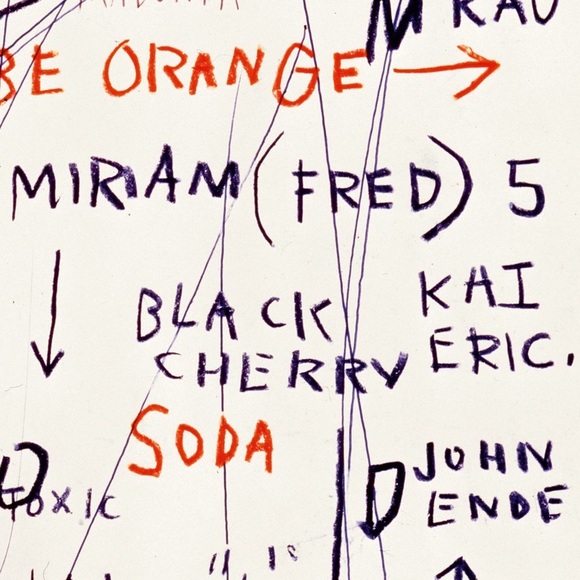 BE ORANGE →
MIRIAM (FRED) 5
BLACK
CHERRY
SODA
KAI
ERIC.
TOXIC
D JOHN
ENDE